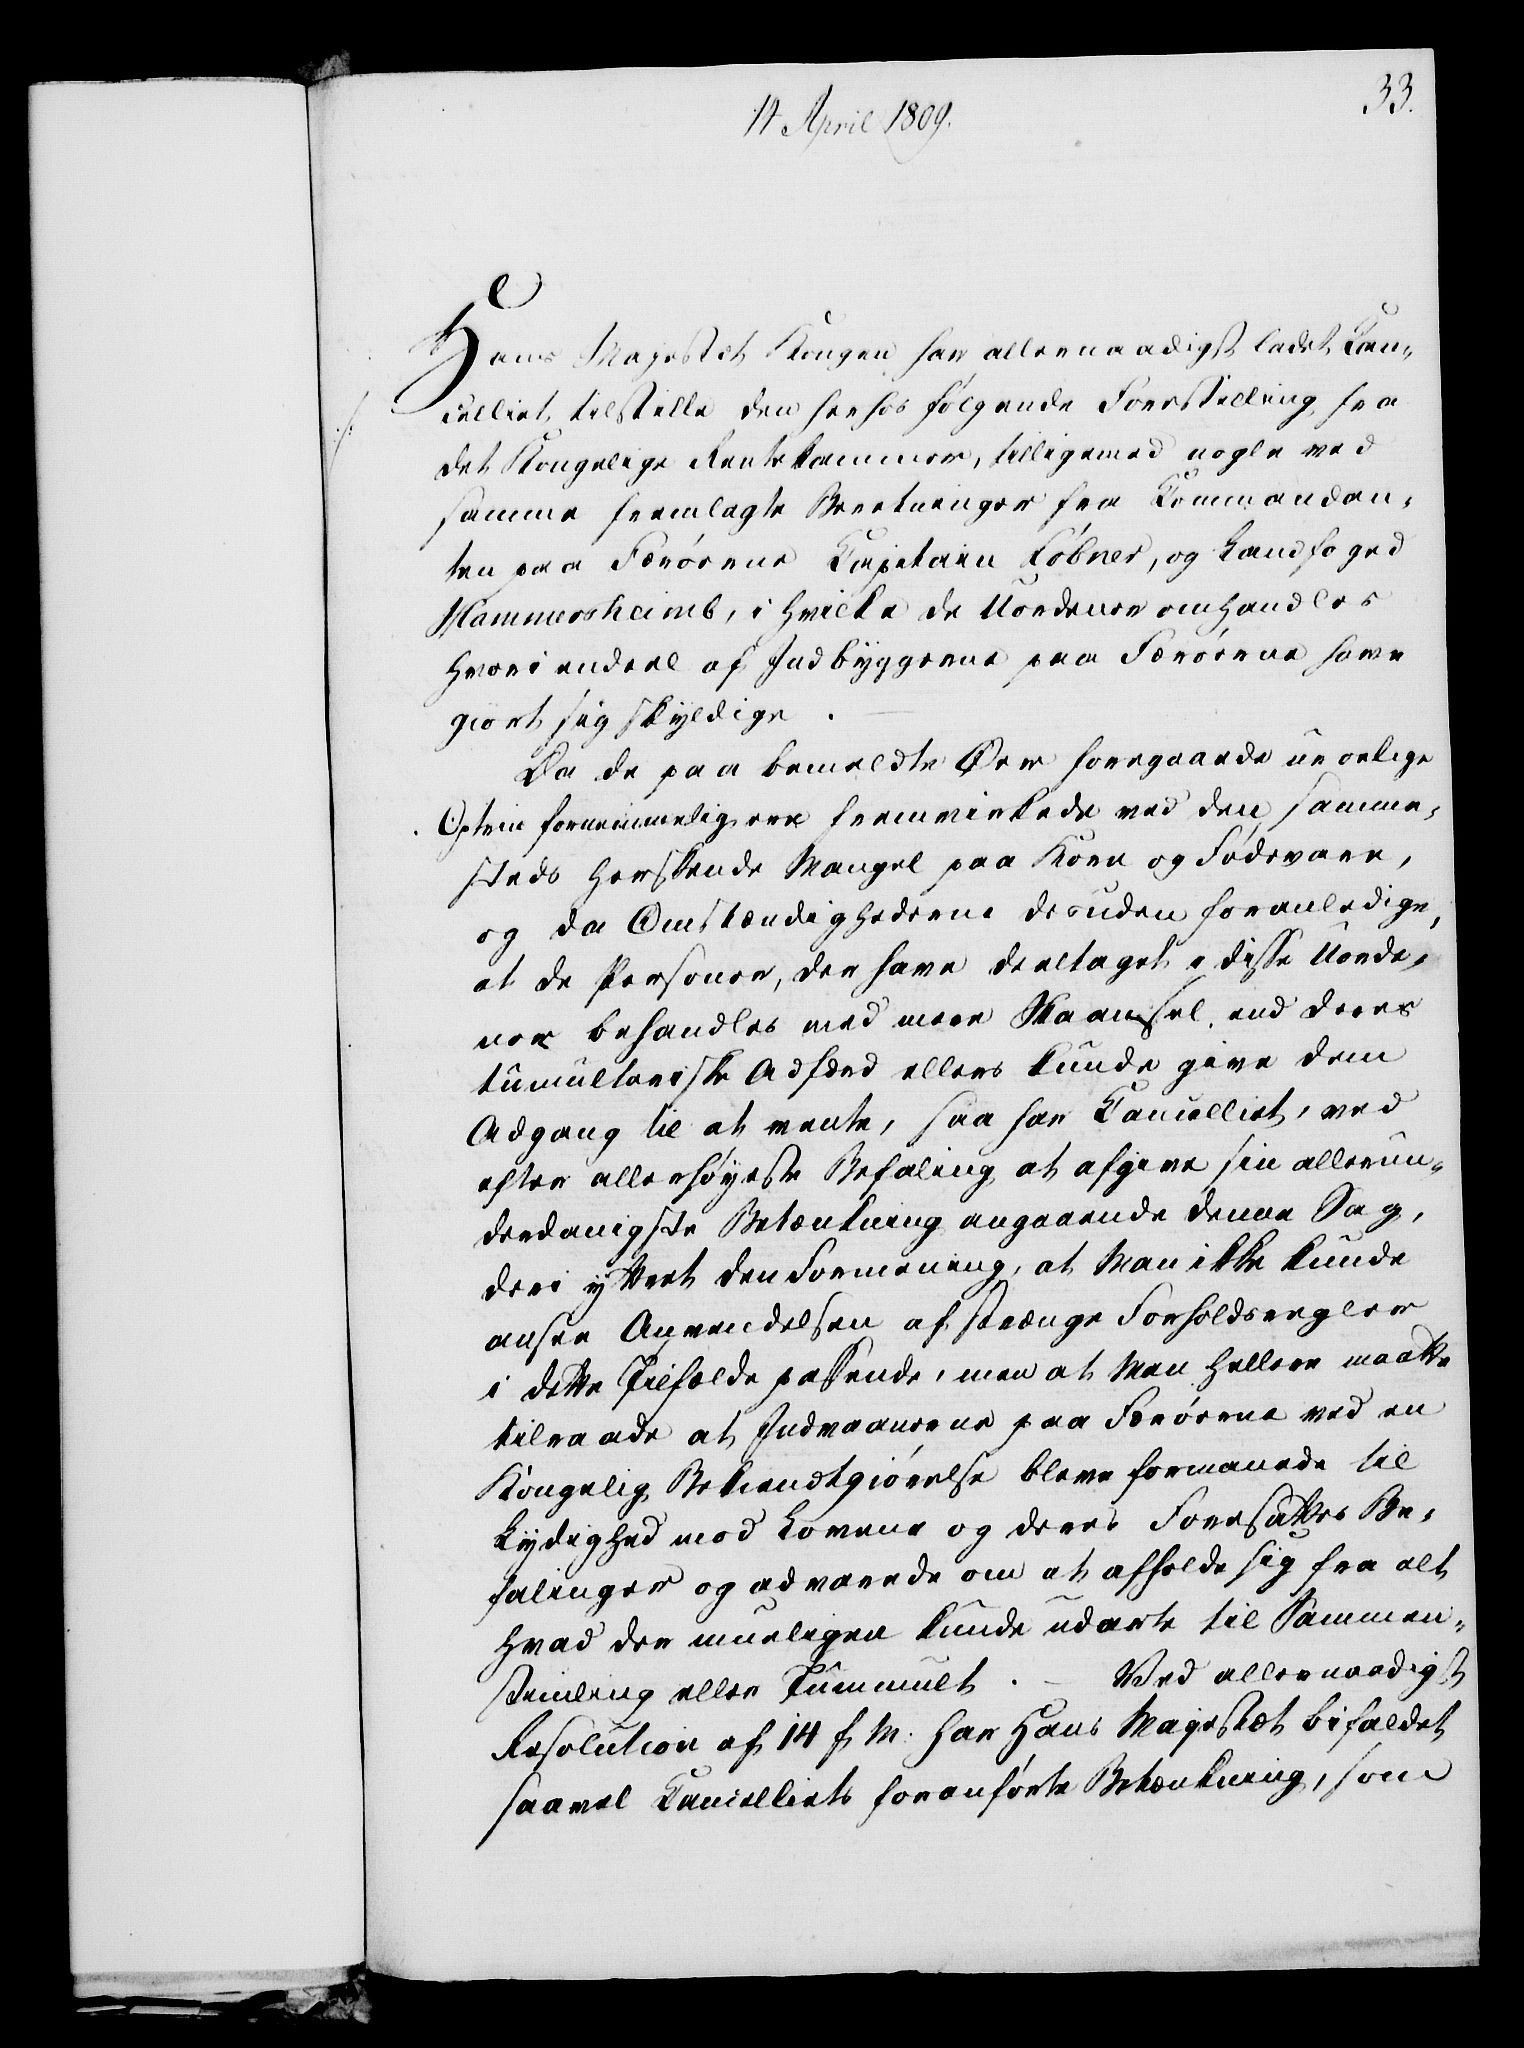 33.
14 April 1809.
Hans Majestæt Kongen har allernaadigst ladet Can-
celliet tilstille den herhos følgende Forestilling fra
det Kongelige Rentekammer, tilligemed nogle ved
samme fremlagte Beretninger fra Commandan-
ten paa Færøerne Capitain Løbner, og Landfoged
Hammersheimb, i hvilke de Uordener omhandles
hvori endeel af Indbyggerne paa Færøerne have
giort sig skyldige.
Da de paa bemeldte Øer foregaaede urolige
Optrin fornemmelig ere fremvirkede ved den samme-
steds herskende Mangel paa Korn og Fødevare,
og da Omstændighederne desuden foranledige,
at de Personer, der have deeltaget i disse Uorde-
ner behandles med mere Skaansel end deres
tumultariske Adfærd ellers kunde give dem
Adgang til at vente, saa har Cancelliet, ved
efter allerhøyeste Befaling at afgive sin allerun-
derdanigste Betænkning angaaende denne Sag,
deri yttret den Formening, at Man ikke kunde
ansee Anvendelsen af strænge Forholdsregler
i dette Tilfælde passende, men at Man hellere maatte
tilraade at Indvaanerne paa Færøerne ved en
Kongelig Bekiendtgiørelse bleve formanede til
Lydighed mod Lovene og deres Foresattes Be-
falinger og advarede om at afholde sig fra alt
hvad der mueligen kunde udarte til Sammen-
stimling eller Tummult. — Ved allernaadigst
Resolution af 14 f. M. har Hans Majestæt bifaldet
saavel Cancelliets foranførte Betænkning, som